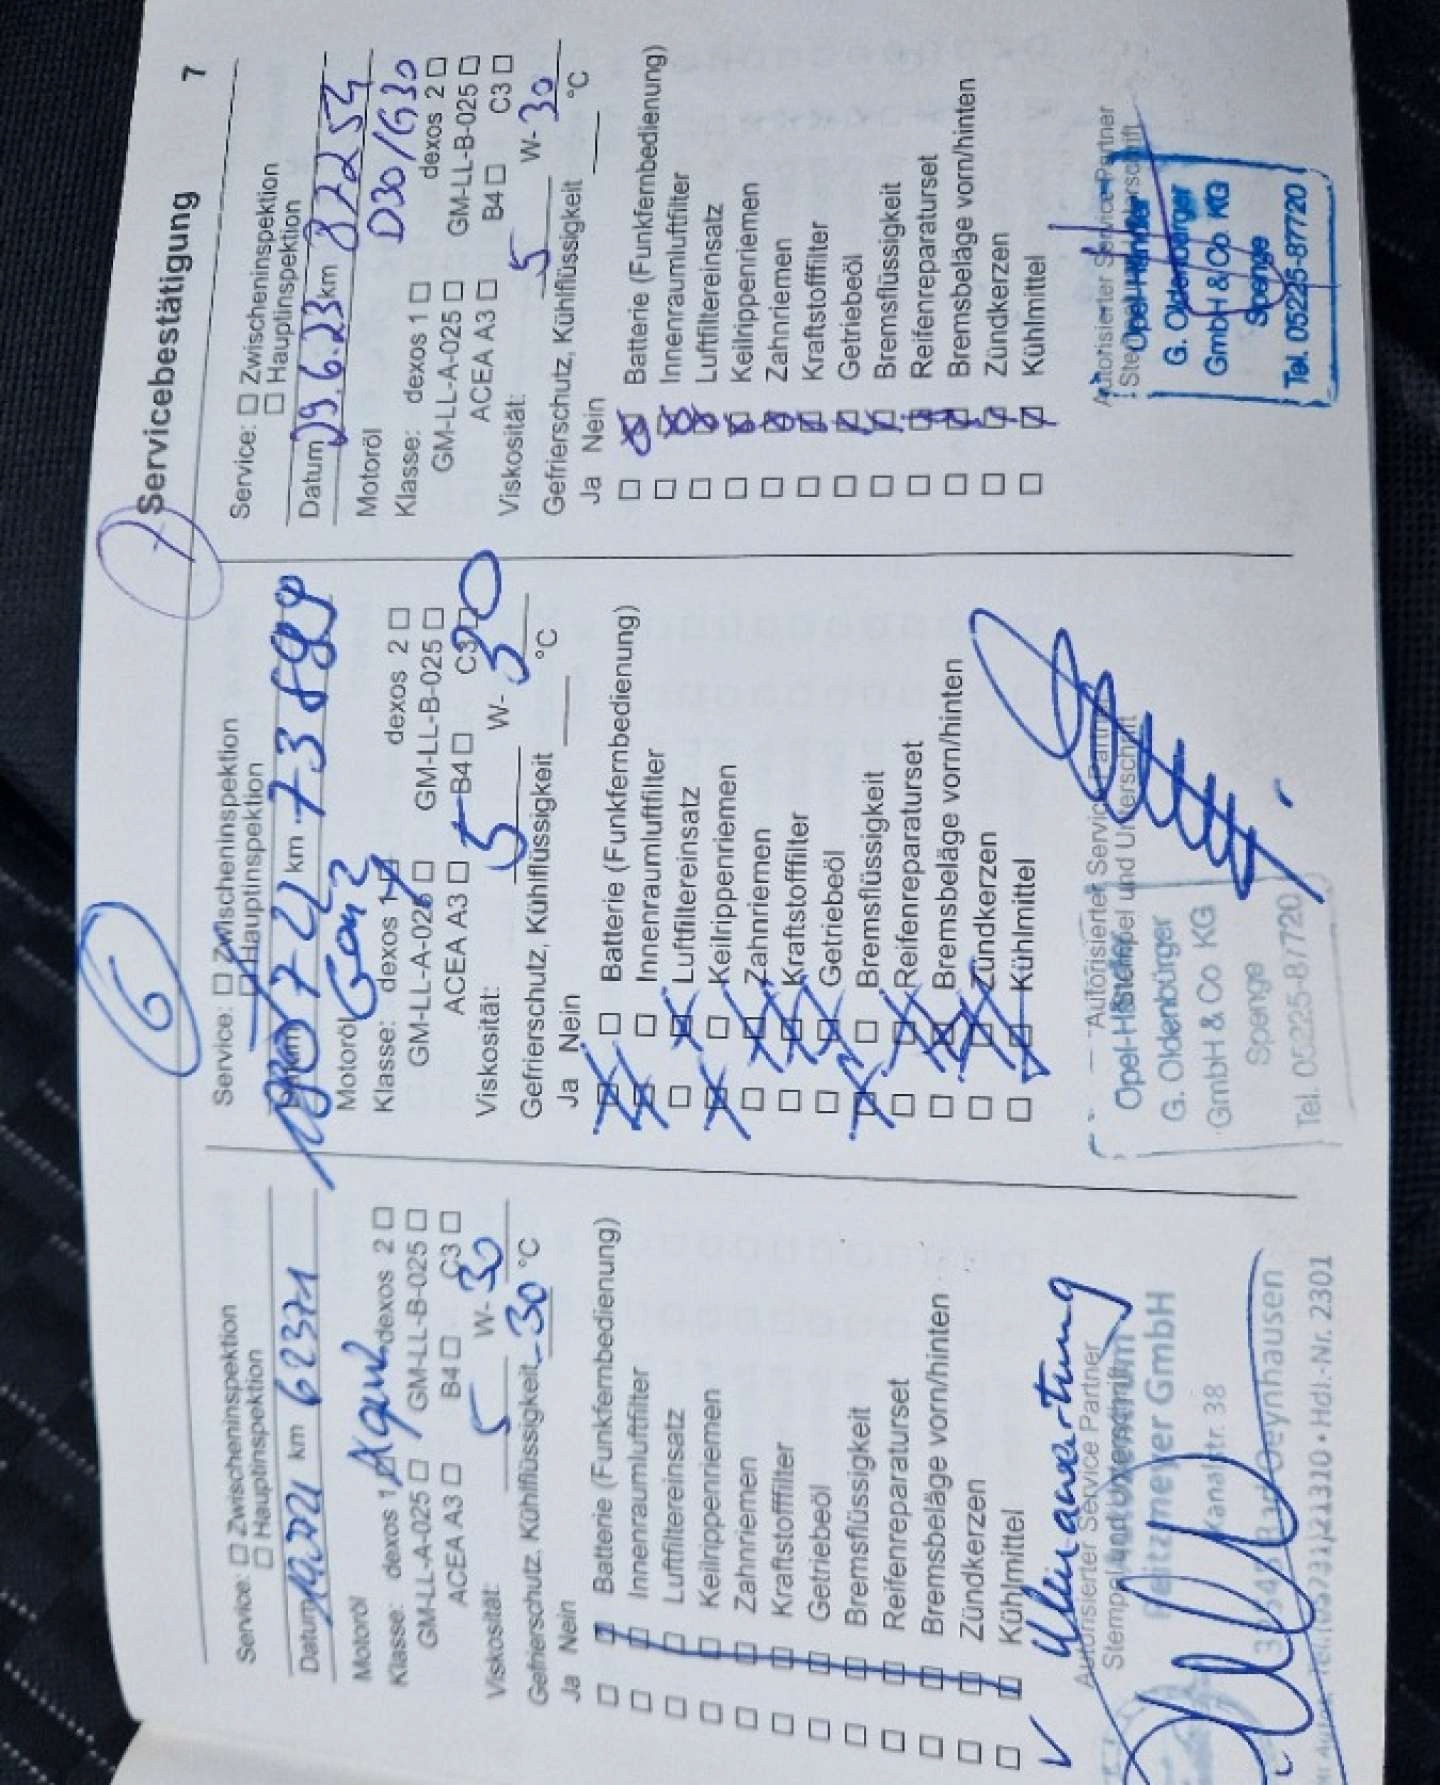 Servicebestätigung 7
Service: Zwischeninspektion
Hauptinspektion
Datum km 62371
Motoröl
Klasse: dexos 1 dexos 2
GM-LL-A-025 GM-LL-B-025
ACEA A3 B4 C3
Viskosität: 5 W- 30
Gefrierschutz, Kühlflüssigkeit -30 °C
Ja Nein
Batterie (Funkfernbedienung)
Innenraumluftfilter
Luftfiltereinsatz
Keilrippenriemen
Zahnriemen
Kraftstofffilter
Getriebeöl
Bremsflüssigkeit
Reifenreparaturset
Bremsbeläge vorn/hinten
Zündkerzen
Kühlmittel
Autorisierter Service Partner
Stempel und Unterschrift
GmbH
Kanalstr. 38
Bad Oeynhausen
Tel. (05731) 21310 • Hdl.-Nr. 2301
6
Service: Zwischeninspektion
Hauptinspektion
7 22 km 73889
Motoröl Gen 2
Klasse: dexos 1 dexos 2
GM-LL-A-025 GM-LL-B-025
ACEA A3 B4 C3
Viskosität: 5 W- 30
Gefrierschutz, Kühlflüssigkeit °C
Ja Nein
Batterie (Funkfernbedienung)
Innenraumluftfilter
Luftfiltereinsatz
Keilrippenriemen
Zahnriemen
Kraftstofffilter
Getriebeöl
Bremsflüssigkeit
Reifenreparaturset
Bremsbeläge vorn/hinten
Zündkerzen
Kühlmittel
Autorisierter Service Partner
Stempel und Unterschrift
Opel-Händler
G. Oldenbürger
GmbH & Co KG
Spenge
Tel. 05225-87720
7
Service: Zwischeninspektion
Hauptinspektion
Datum 29.6.23 km 87254
Motoröl D30/G30
Klasse: dexos 1 dexos 2
GM-LL-A-025 GM-LL-B-025
ACEA A3 B4 C3
Viskosität: 5 W- 30
Gefrierschutz, Kühlflüssigkeit °C
Ja Nein
Batterie (Funkfernbedienung)
Innenraumluftfilter
Luftfiltereinsatz
Keilrippenriemen
Zahnriemen
Kraftstofffilter
Getriebeöl
Bremsflüssigkeit
Reifenreparaturset
Bremsbeläge vorn/hinten
Zündkerzen
Kühlmittel
Autorisierter Service Partner
Opel-Händler
G. Oldenbürger
GmbH & Co KG
Spenge
Tel. 05225-87720